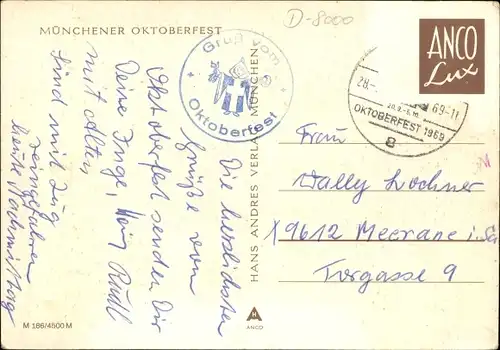 MÜNCHENER OKTOBERFEST
D-8000
Gruß vom
Oktoberfest
ANCO
Lux
28.-
69-11
20.9.-5.10.
OKTOBERFEST 1969
8
Die herzlichsten
Grüße vom
Oktoberfest senden Dir
Deine Inge, Heinz Rudl
mit Alten,
Sind mit Zug
reingefahren
heute Nachmittag
HANS ANDRES VERLAG MÜNCHEN
Frau
Wally Lochner
X9612 Meerane i. Sa
Torgasse 9
M 186/4500 M
ANCO